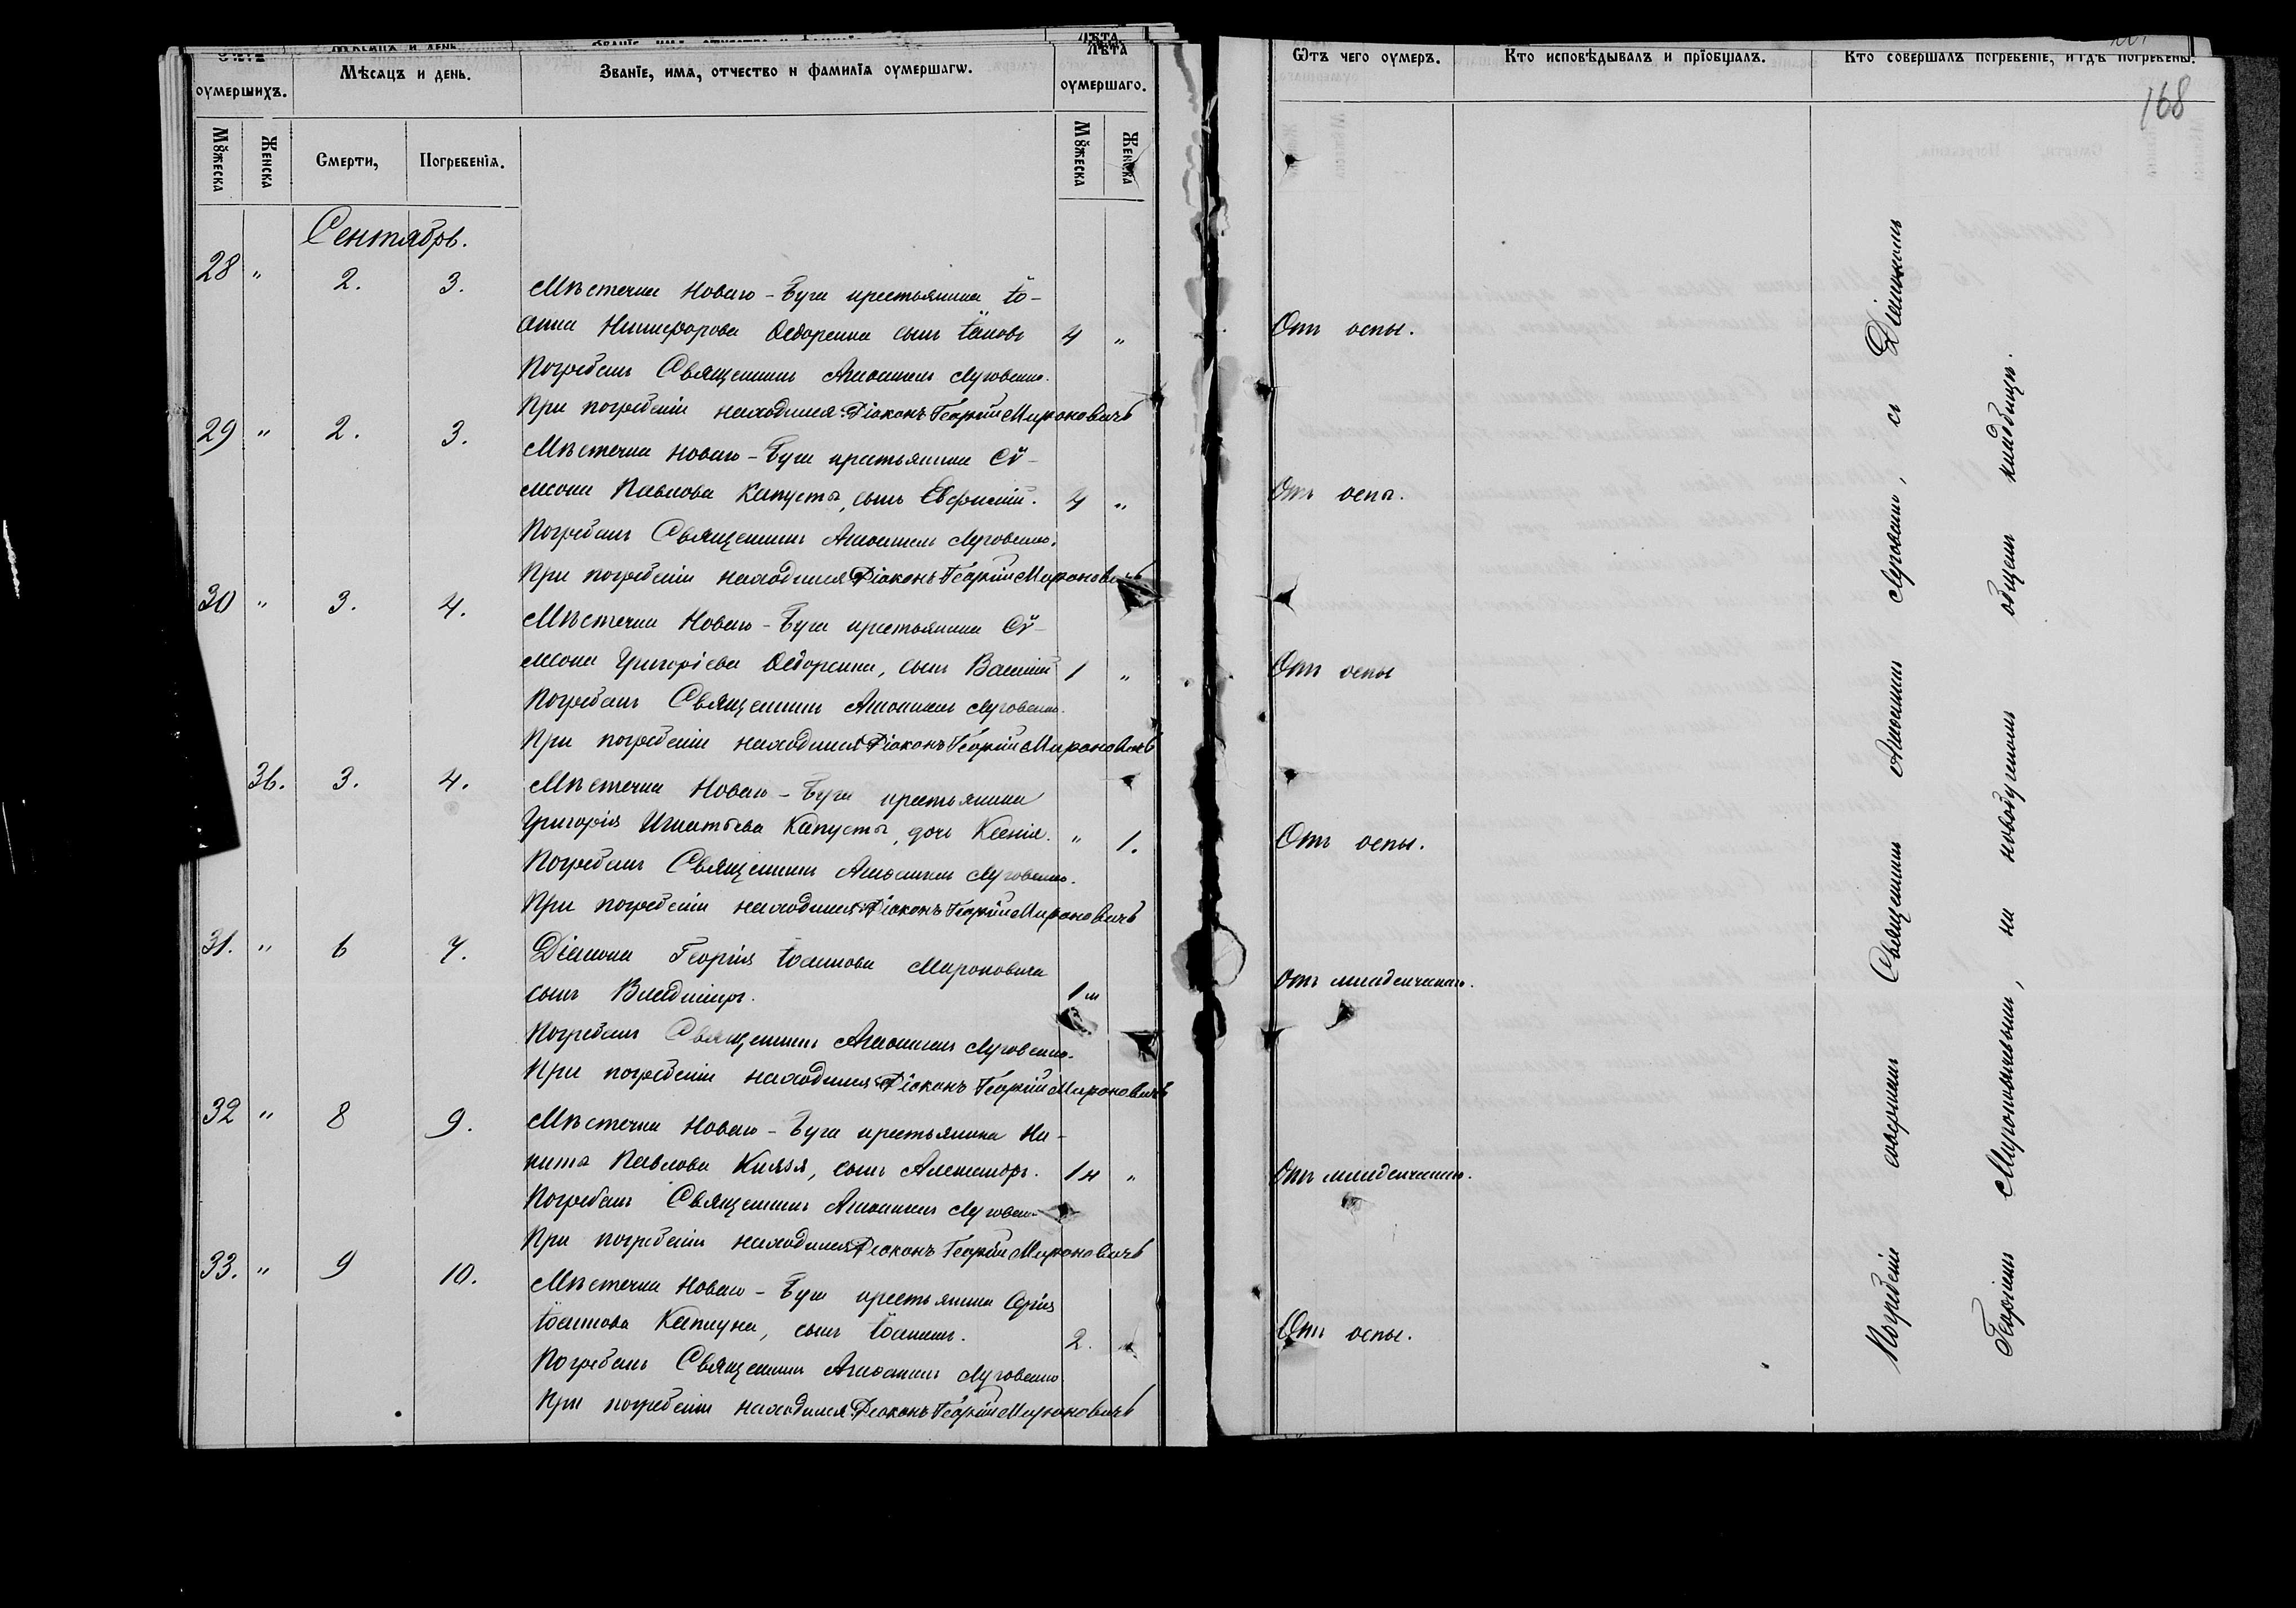 Счетъ оумершихъ.
Мѣсяцъ и день.
Званїе, имя, отчество и фамилїя оумершагѡ.
Лѣта оумершаго.
Мꙋжеска
Женска
Смерти,
Погребенїя.
Мꙋжеска
Женска
Ѿтъ чего оумеръ.
Кто исповѣдывалъ и прїобщалъ.
Кто совершалъ погребенїе, и гдѣ погребены.
168
Сентябрь.
28 " 2. 3. Мѣстечка Новаго-Буга крестьянина Іо-
анна Никифорова Федоренка сынъ Іаковъ 4 " Отъ оспы.
Погребалъ Священникъ Анастасій Луговенко.
При погребеніи находился: Діаконъ Георгій Мироновичъ
29 " 2. 3. Мѣстечка Новаго-Буга крестьянина Сѵ-
меона Павлова Капусты, сынъ Евфимій. 4 " Отъ оспы.
Погребалъ Священникъ Луговенко.
При погребеніи находился Діаконъ Георгій Мироновичъ
30 " 3. 4. Мѣстечка Новаго-Буга крестьянина Сѵ-
меона Григоріева Федоренка, сынъ Василій 1 " Отъ оспы
Погребалъ Священникъ Луговенко.
При погребеніи находился Діаконъ Георгій Мироновичъ
36. 3. 4. Мѣстечка Новаго-Буга крестьянина
Григорія Игнатьева Капусты, дочь Ксенія. " 1. Отъ оспы.
Погребалъ Священникъ Луговенко.
При погребеніи находился: Діаконъ Георгій Мироновичъ
31. " 6 7. Діакона Георгія Іоаннова Мироновича
сынъ Владиміръ. 1м Отъ младенческаго.
Погребалъ Священникъ Луговенко.
При погребеніи находился Діаконъ Георгій Мироновичъ
32 " 8 9. Мѣстечка Новаго-Буга крестьянина Ни-
киты Павлова Князя, сынъ Александръ. 1н " Отъ младенческаго.
Погребалъ Священникъ Луговенко
При погребеніи находился Діаконъ Георгій Мироновичъ
33. " 9 10. Мѣстечка Новаго-Буга крестьянина
Іоаннова Каплуна, сынъ Іоаннъ. 2. " Отъ оспы.
Погребалъ Священникъ Луговенко
При погребеніи находился: Діаконъ Георгій Мироновичъ
Погребеніе совершалъ Священникъ Луговенко, съ Діакономъ
Георгіемъ Мироновичемъ, на новобугскомъ общемъ кладбищѣ.